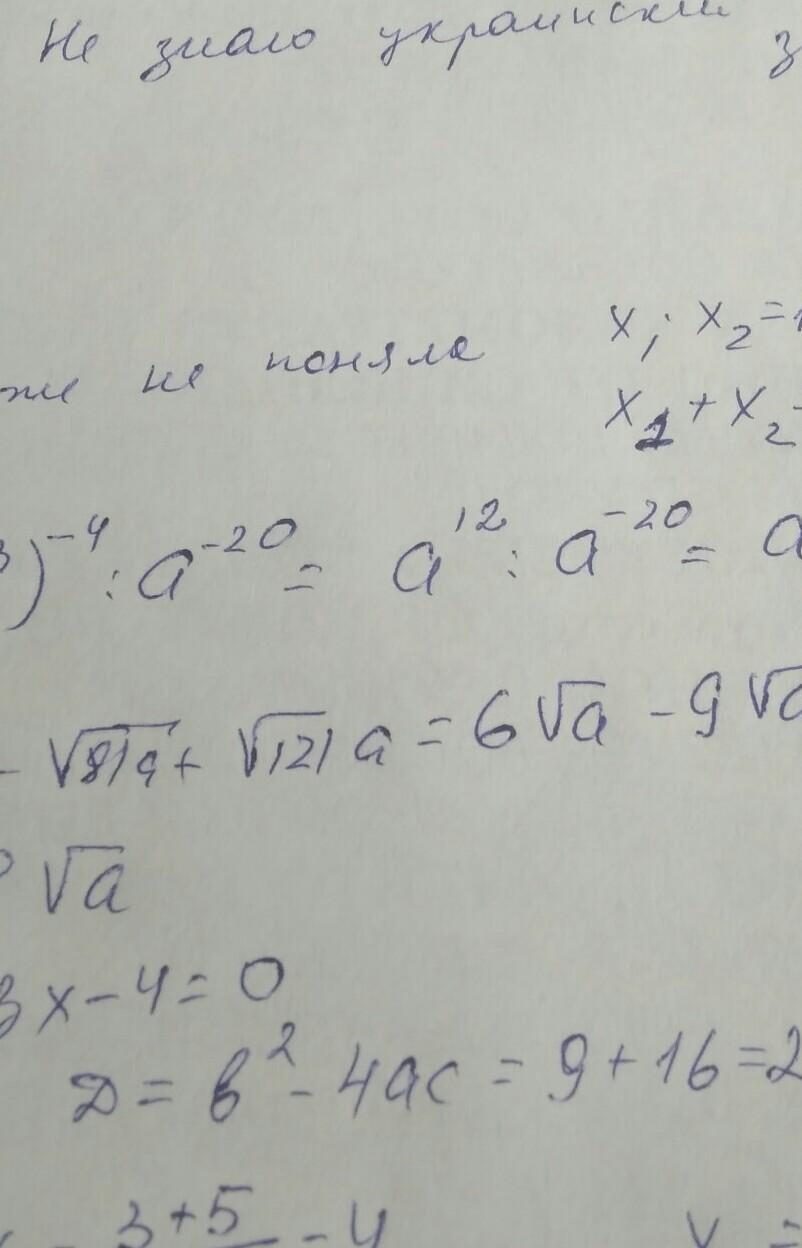 Не знаю украинский з
же не поняла x₁ · x₂ =
x₁ + x₂
)⁻⁴ : a⁻²⁰ = a¹² : a⁻²⁰ = a
- √81a + √121a = 6√a - 9√a
√a
3x - 4 = 0
D = b² - 4ac = 9 + 16 = 2
3+5